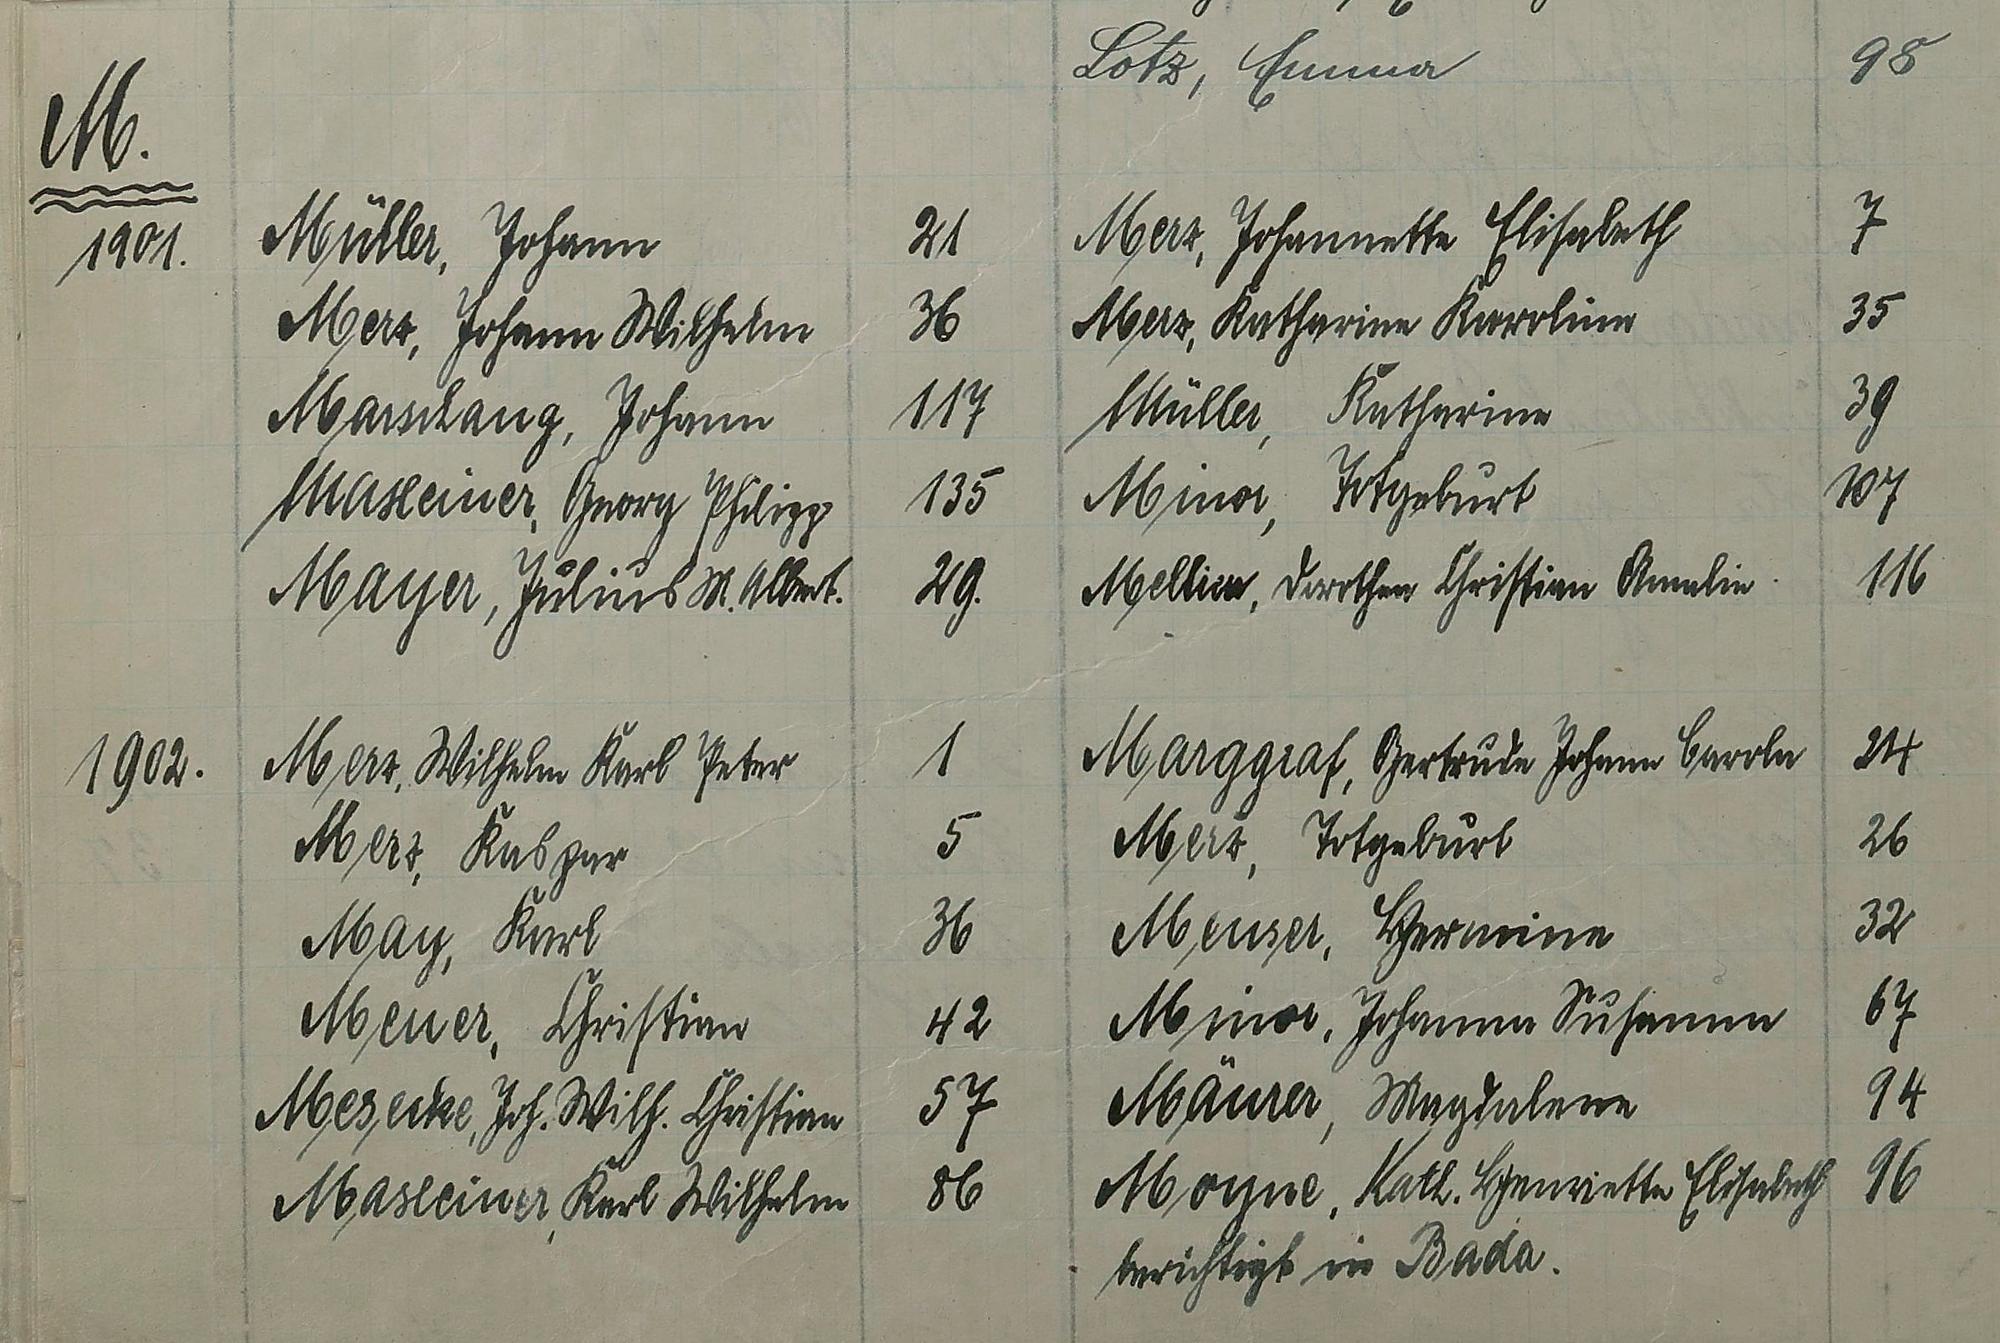 Lotz, Emma 98
M.
1901. Müller, Johann 21 Merz, Johannette Elisabeth 7
Merz, Johann Wilhelm 36 Merz, Katharine Karoline 35
Marschang, Johann 117 Müller, Katharine 39
Masseiner, Georg Philipp 135 Minor, Totgeburt 107
Mayer, Julius M. Albert. 29. Dorothea Christian Amalie 116
1902. Merz, Wilhelm Karl Peter 1 Marggraf, Gertrude Johann Carola 24
Merz, Kaspar 5 Merz, Totgeburt 26
May, Karl 36 Meuser, Hermine 32
Meuer, Christian 42 Minor, Johanna Susanna 67
Mesecke, Joh. Wilh. Christian 57 Mäurer, Magdalene 94
Masseiner, Karl Wilhelm 86 Moyne, Kath. Henriette Elisabeth 96
berichtigt in Bada.